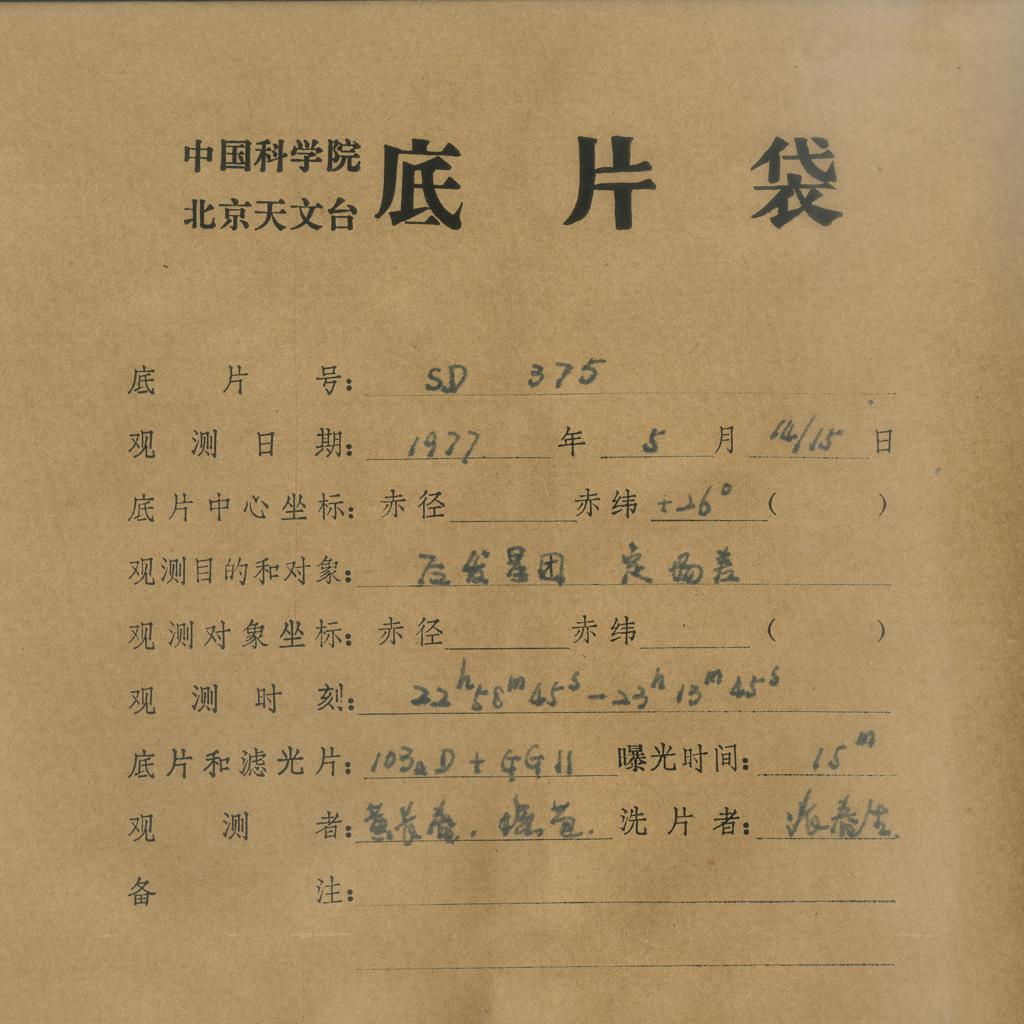 中国科学院
北京天文台
底片袋
底片号: SD 375
观测日期: 1977年5月14/15日
底片中心坐标: 赤径 赤纬 +26° ( )
观测目的和对象: 后发星团 定场差
观测对象坐标: 赤径 赤纬 ( )
观测时刻: 22h58m45s - 23h13m45s
底片和滤光片: 103aD + GG11 曝光时间: 15m
观测者: 黄长春. 洗片者: 张春生.
备注: